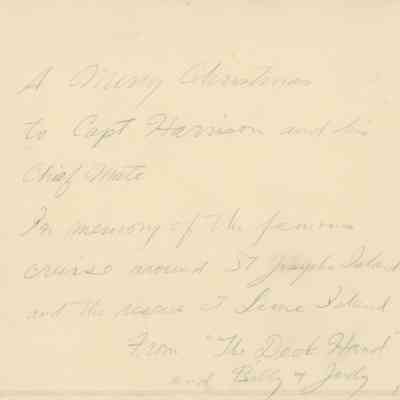 A Merry Christmas
to Capt Harrison and his
Chief Mate
In memory of the famous
cruise around St Josephs Island
and the rescue at Lime Island
From "The Deck Hand"
and Billy & Judy